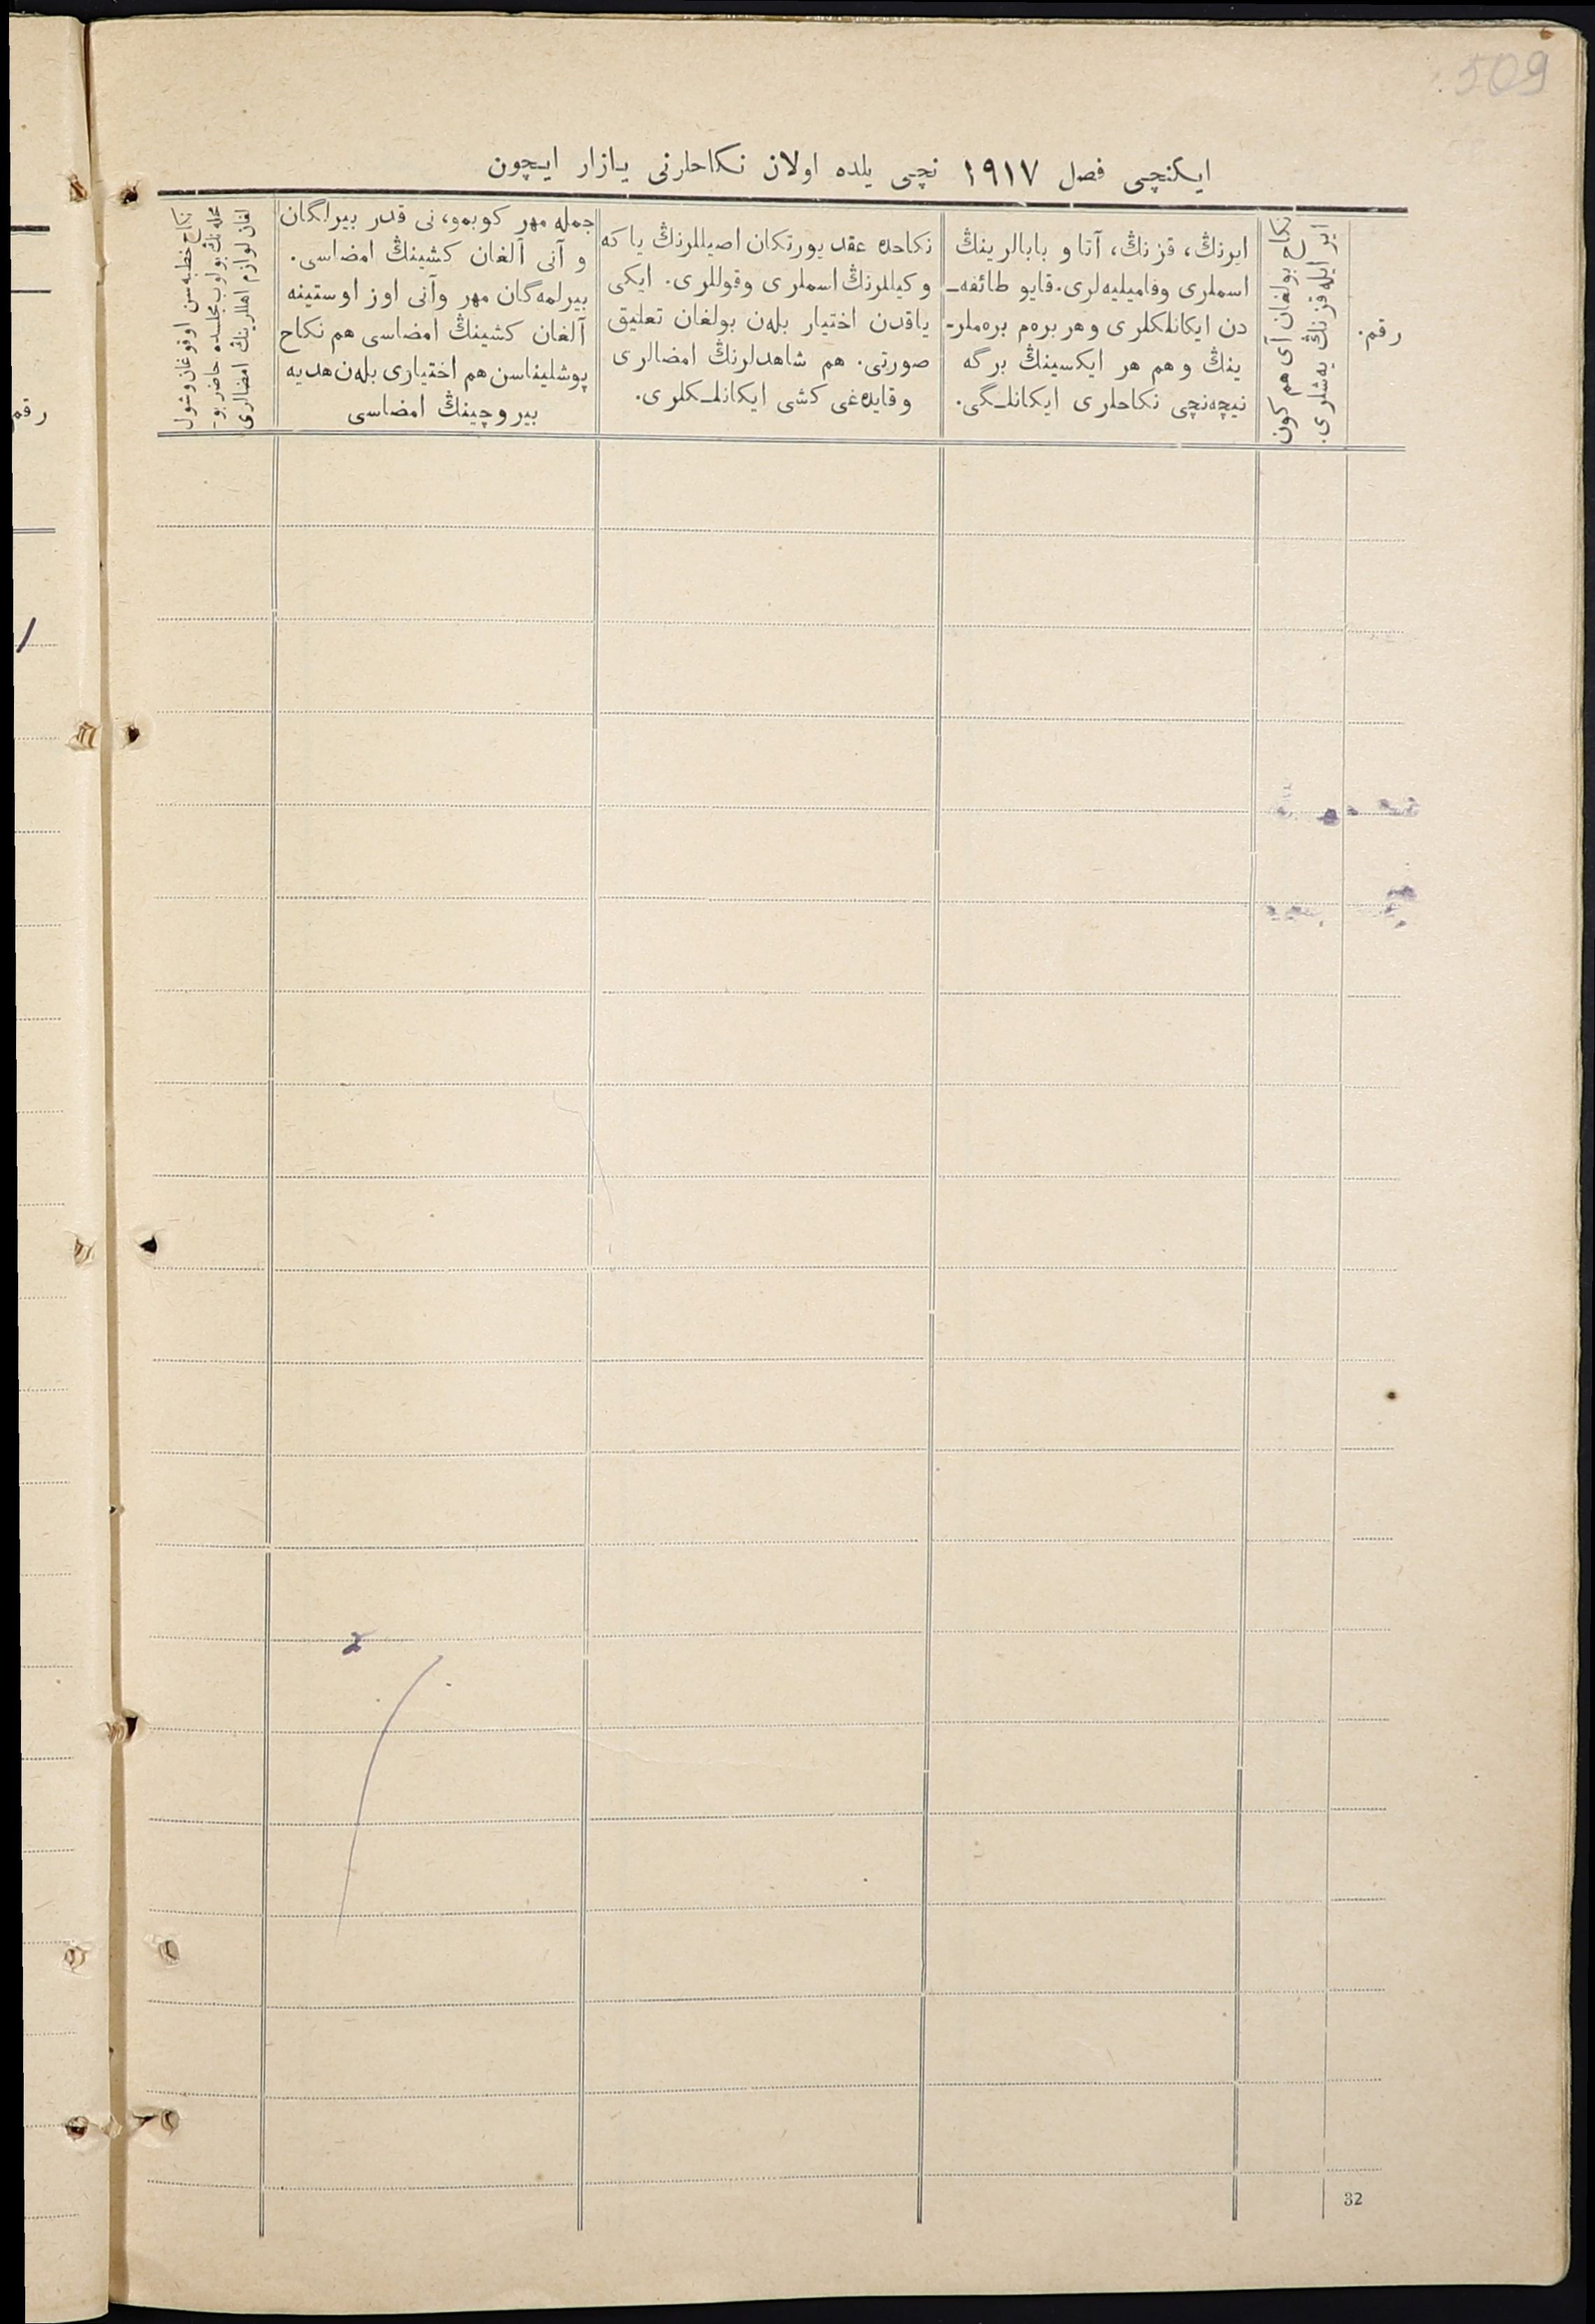 509
ایکنچی فصل ١٩١٧ نچی یلده اولان نکاحلرنی یازار ایچون
رقم.
نکاح بولغان آی هم کون
ایر ایله قزنڭ یەشلری.
ایرنڭ، قزنڭ، آتا و بابالرینڭ
اسملری وفامیلیەلری. قایو طائفەـ
دن ایکانلکلری وهر برەم برەملرـ
ینڭ وهم هر ایکسینڭ برگە
نیچەنچی نکاحلری ایکانلـگی.
نکاحدە عقد یورتکان اصیللرنڭ یا کە
وکیللرنڭ اسملری وقوللری. ایکی
یاقدن اختیار بلەن بولغان تعلیق
صورتی. هم شاهدلرنڭ امضالری
وقایدەغی کشی ایکانلـکلری.
جملە مهر کوبمو، نی قدر بیرلگان
و آنی آلغان کشینڭ امضاسی.
بیرلمەگان مهر وآنی اوز اوستینە
آلغان کشینڭ امضاسی هم نکاح
پوشلیناسن هم اختیاری بلەن هدیە
بیروچینڭ امضاسی
نکاح خطبەسن اوقوغان وشول
محلەنڭ بولوب مجلسدە حاضر بوـ
لغان لوازم اهللرینڭ امضالری
رقم
32